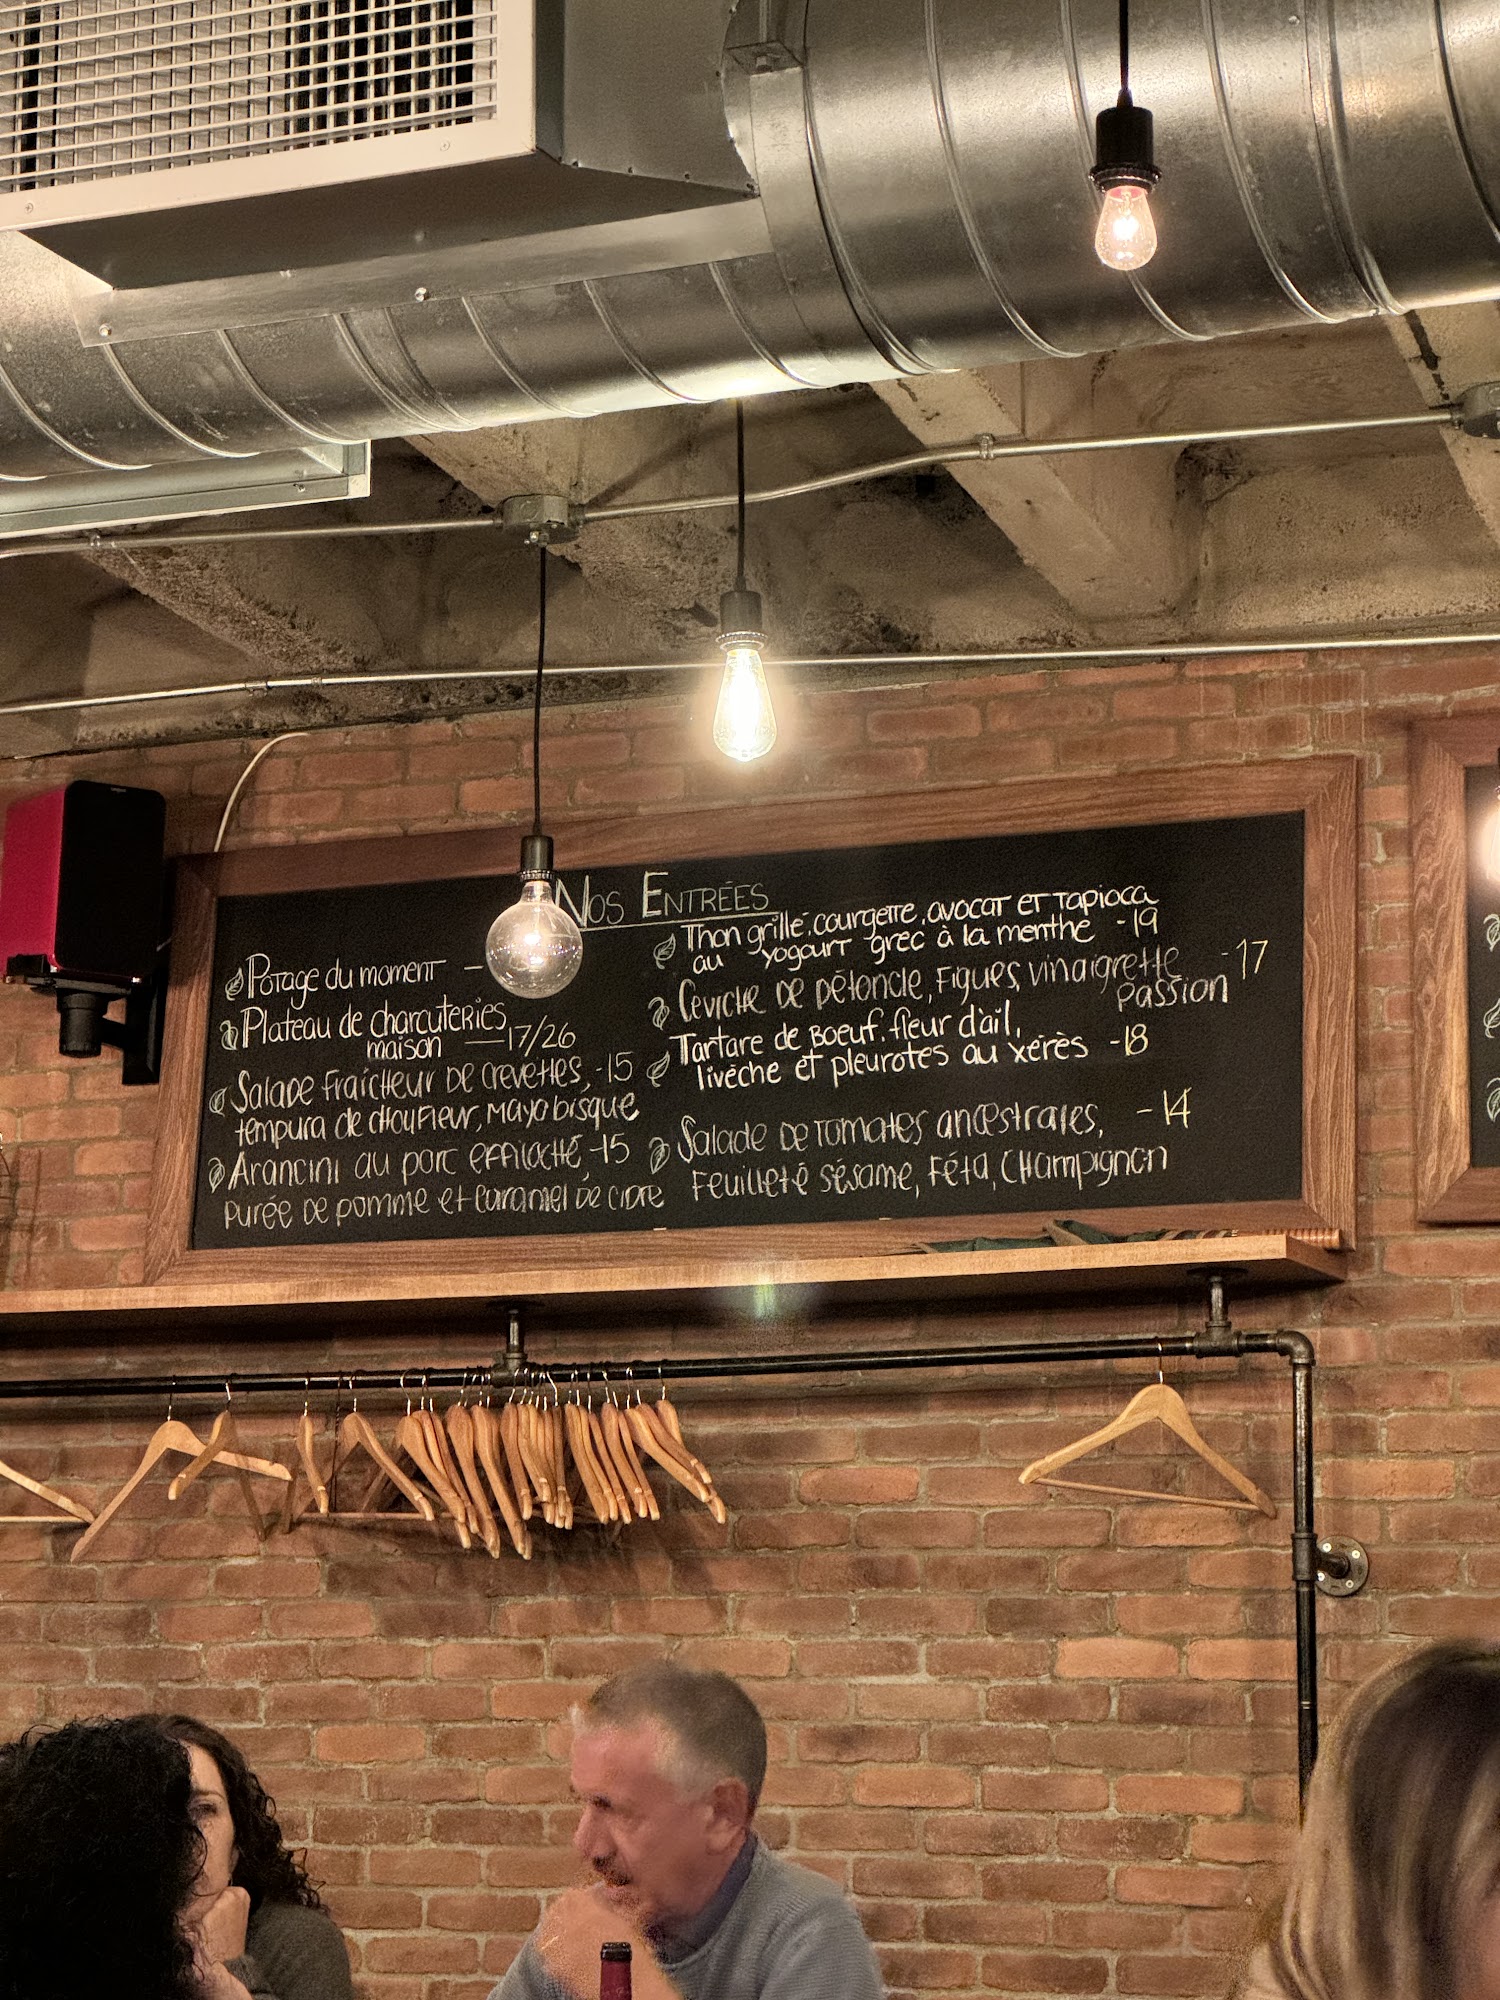 Nos Entrées
Potage du moment —
Plateau de charcuteries
maison — 17/26
Salade fraîcheur de crevettes, -15
tempura de choufleur, mayo bisque
Arancini au porc effiloché -15
purée de pomme et caramel de cidre
Thon grillé, courgette, avocat et tapioca
au yogourt grec à la menthe -19
Ceviche de pétoncle, figues, vinaigrette -17
passion
Tartare de boeuf, fleur d'ail,
livèche et pleurotes au xérès -18
Salade de tomates ancestrales, -14
Feuilleté sésame, féta, champignon